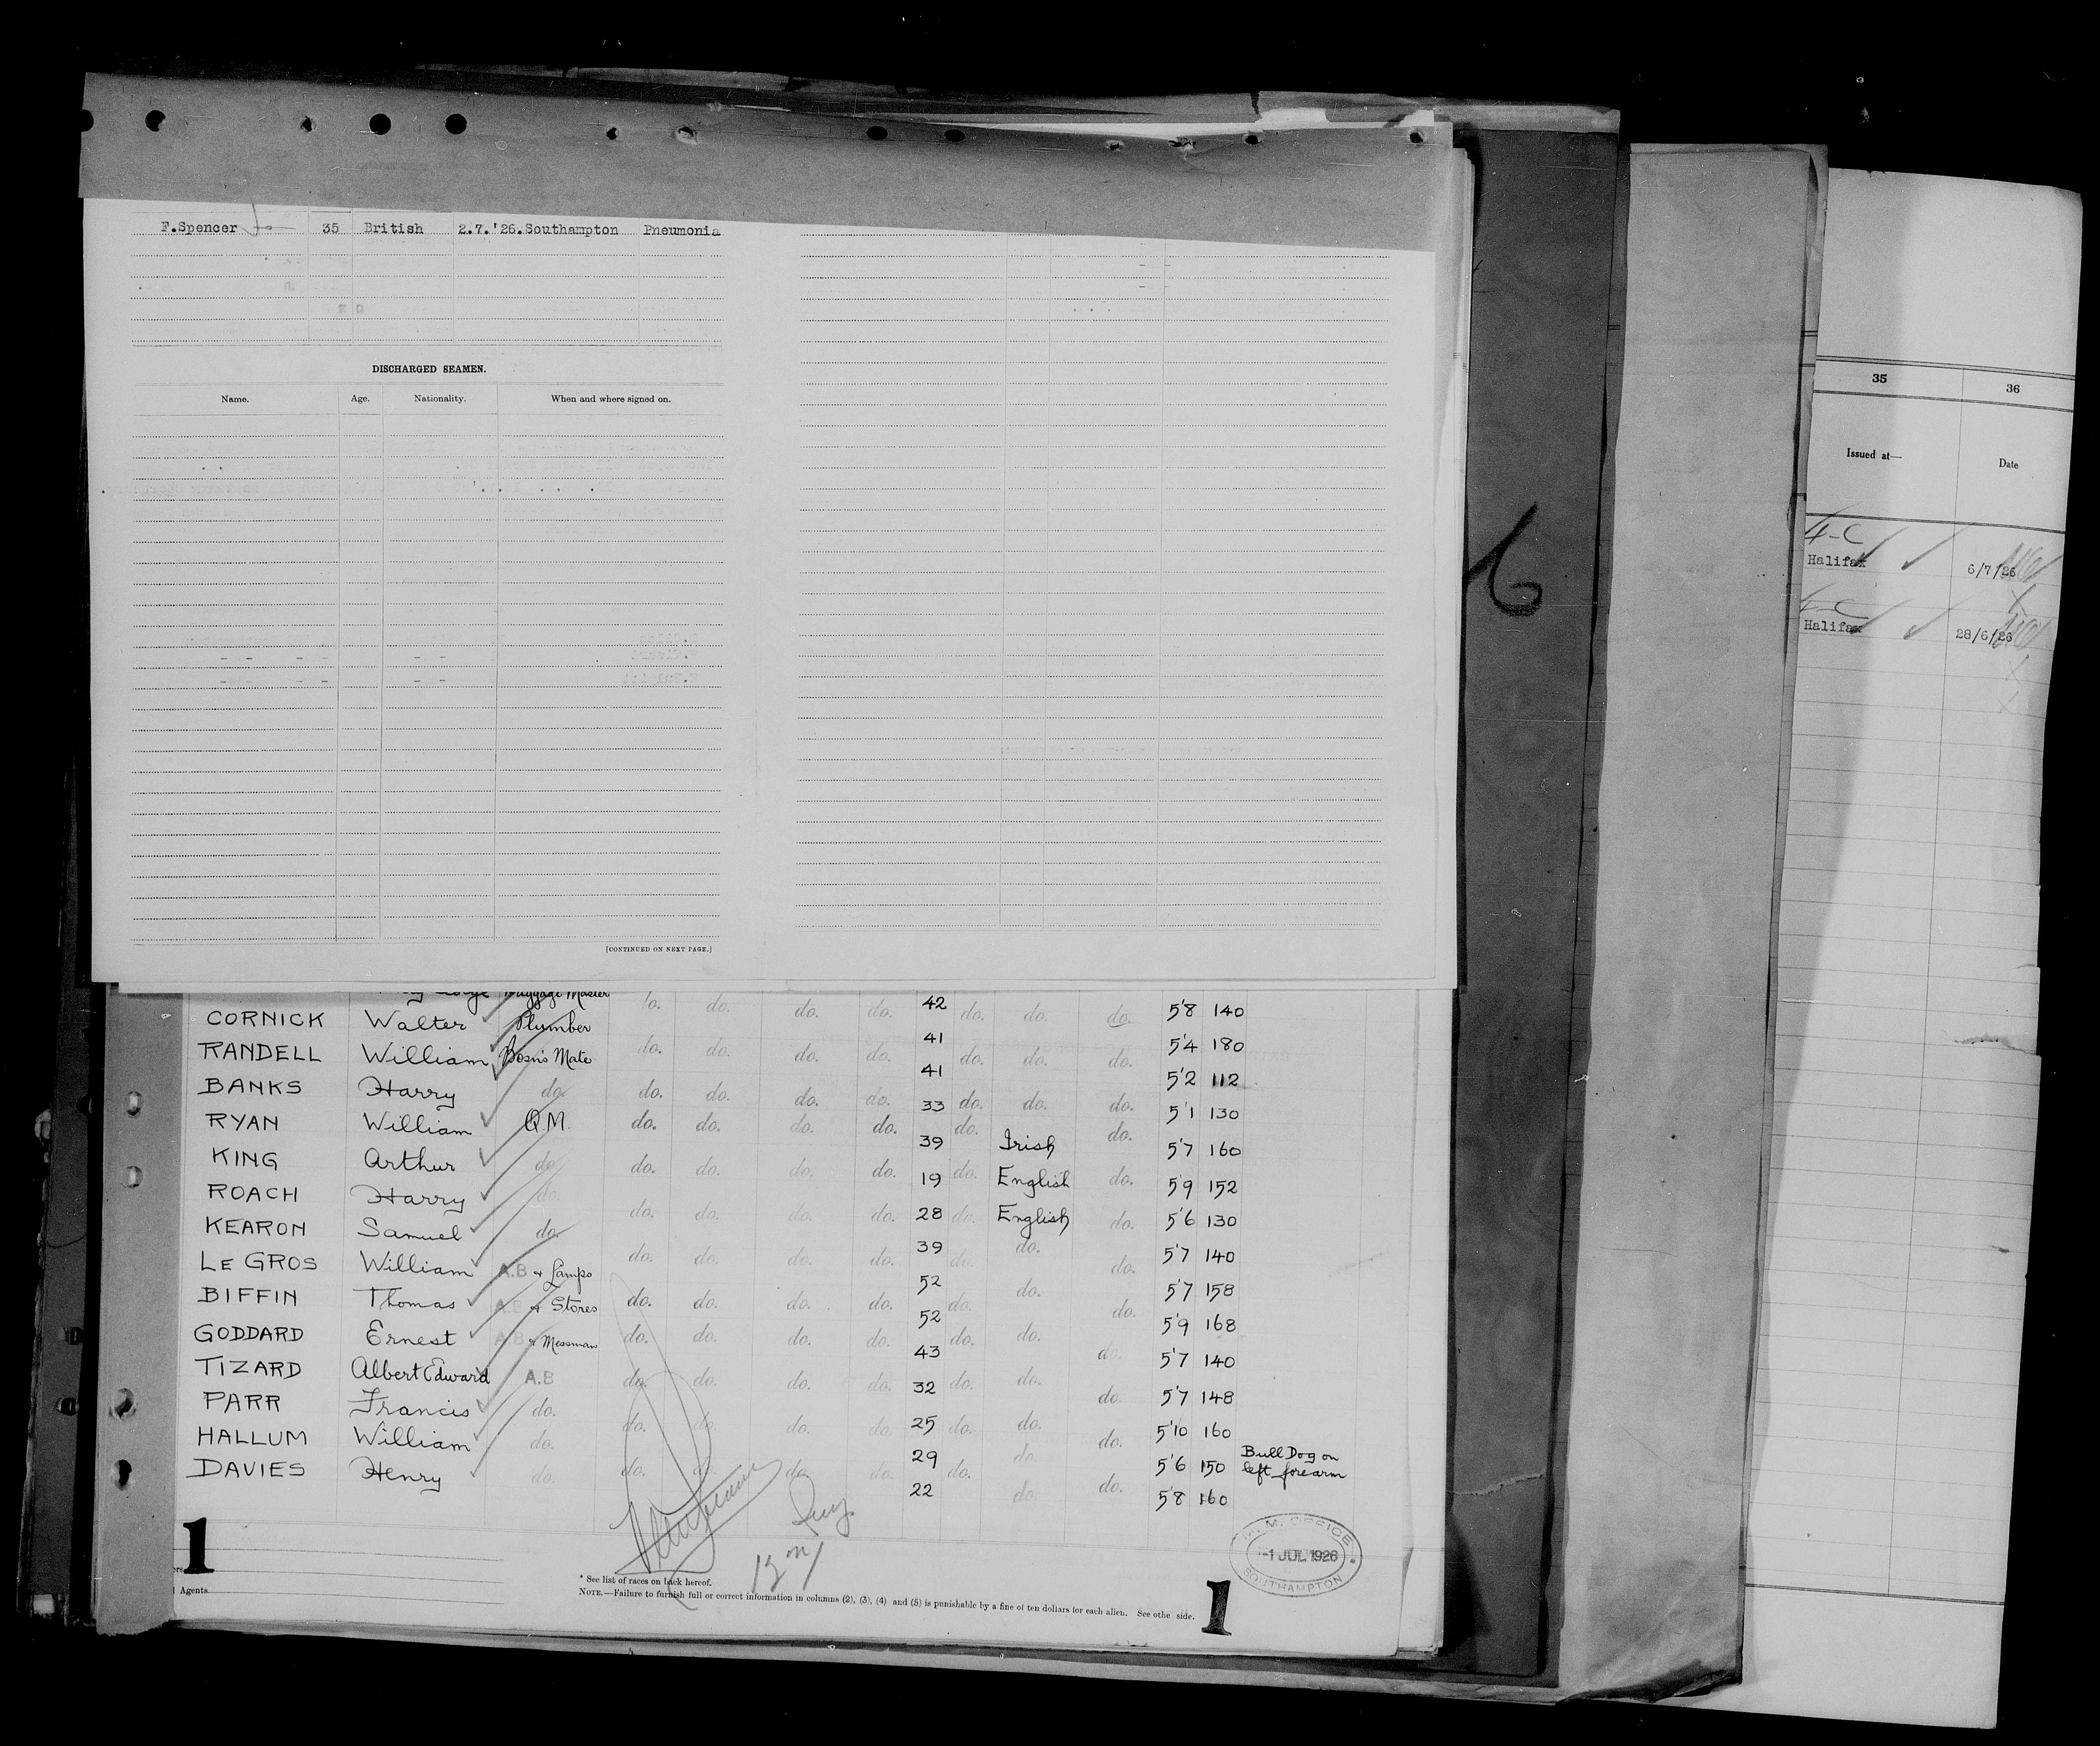 F.Spencer 35 British 2.7.'26. Southampton Pneumonia
DISCHARGED SEAMEN.
Name. Age. Nationality. When and where signed on.
[CONTINUED ON NEXT PAGE.]
6
35 36
Issued at— Date
4-C
Halifax 6/7/26
4-C
Halifax 28/6/26
George Baggage Master do. do. do. do. 42 do. do. do. 5'8 140
CORNICK Walter Plumber do. do. do. do. 41 do. do. do. 5'4 180
RANDELL William Bosn's Mate do. do. do. do. 41 do. do. do. 5'2 112
BANKS Harry do. do. do. do. do. 33 do. do. do. 5'1 130
RYAN William Q.M. do. do. do. do. 39 do. Irish do. 5'7 160
KING Arthur do. do. do. do. do. 19 do. English do. 5'9 152
ROACH Harry do. do. do. do. do. 28 do. English do. 5'6 130
KEARON Samuel do. do. do. do. do. 39 do. do. do. 5'7 140
LE GROS William A.B & Lamps do. do. do. do. 52 do. do. do. 5'7 158
BIFFIN Thomas A.B & Stores do. do. do. do. 52 do. do. do. 5'9 168
GODDARD Ernest A.B & Messman do. do. do. do. 43 do. do. do. 5'7 140
TIZARD Albert Edward A.B do. do. do. do. 32 do. do. do. 5'7 148
PARR Francis do. do. do. do. do. 25 do. do. do. 5'10 160
HALLUM William do. do. do. do. do. 29 do. do. do. 5'6 150 Bull Dog on left forearm
DAVIES Henry do. 22 do 5'8 160
1
Agents
* See list of races on back hereof.
NOTE.—Failure to furnish full or correct information in columns (2), (3), (4) and (5) is punishable by a fine of ten dollars for each alien. See othe side.
M. M. OFFICE
-1 JUL 1926
SOUTHAMPTON
1